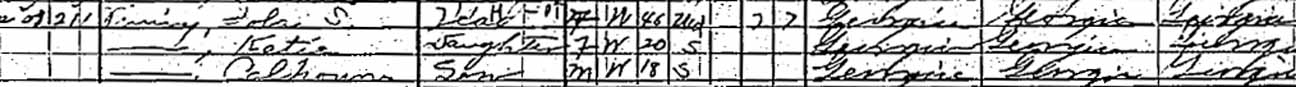 Head F W 46 Wd 7 7 Georgia Georgia Georgia
——, Katie Daughter F W 20 S Georgia Georgia Georgia
——, Calhoun Son M W 18 S Georgia Georgia Georgia